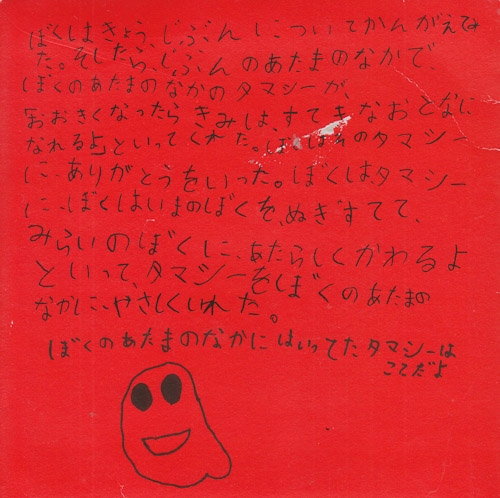 ぼくはきょう、じぶんについてかんがえて
た。そしたら、じぶんのあたまのなかで、
ぼくのあたまのなかのタマシーが、
「おおきくなったらきみは、すてきなおとなに
なれるよ」といってくれた。ぼくはそのタマシー
に、ありがとうをいった。ぼくは、タマシー
に、ぼくはいまのぼくを、ぬぎすてて、
みらいのぼくに、あたらしくかわるよ
といって、タマシーをぼくのあたまの
なかに、やさしくいれた。
ぼくのあたまのなかにはいってたタマシーは
ここだよ